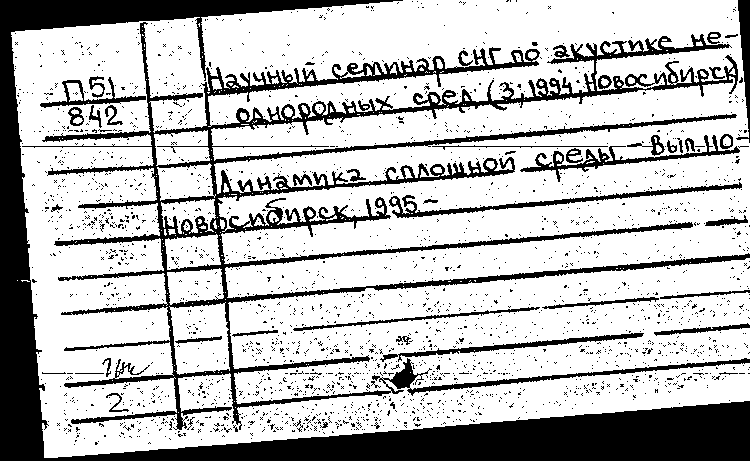 П51
842
Научный семинар СНГ по акустике не-
однородных сред (3; 1994; Новосибирск)
Динамика сплошной среды. - Вып. 110. -
Новосибирск, 1995 -
2